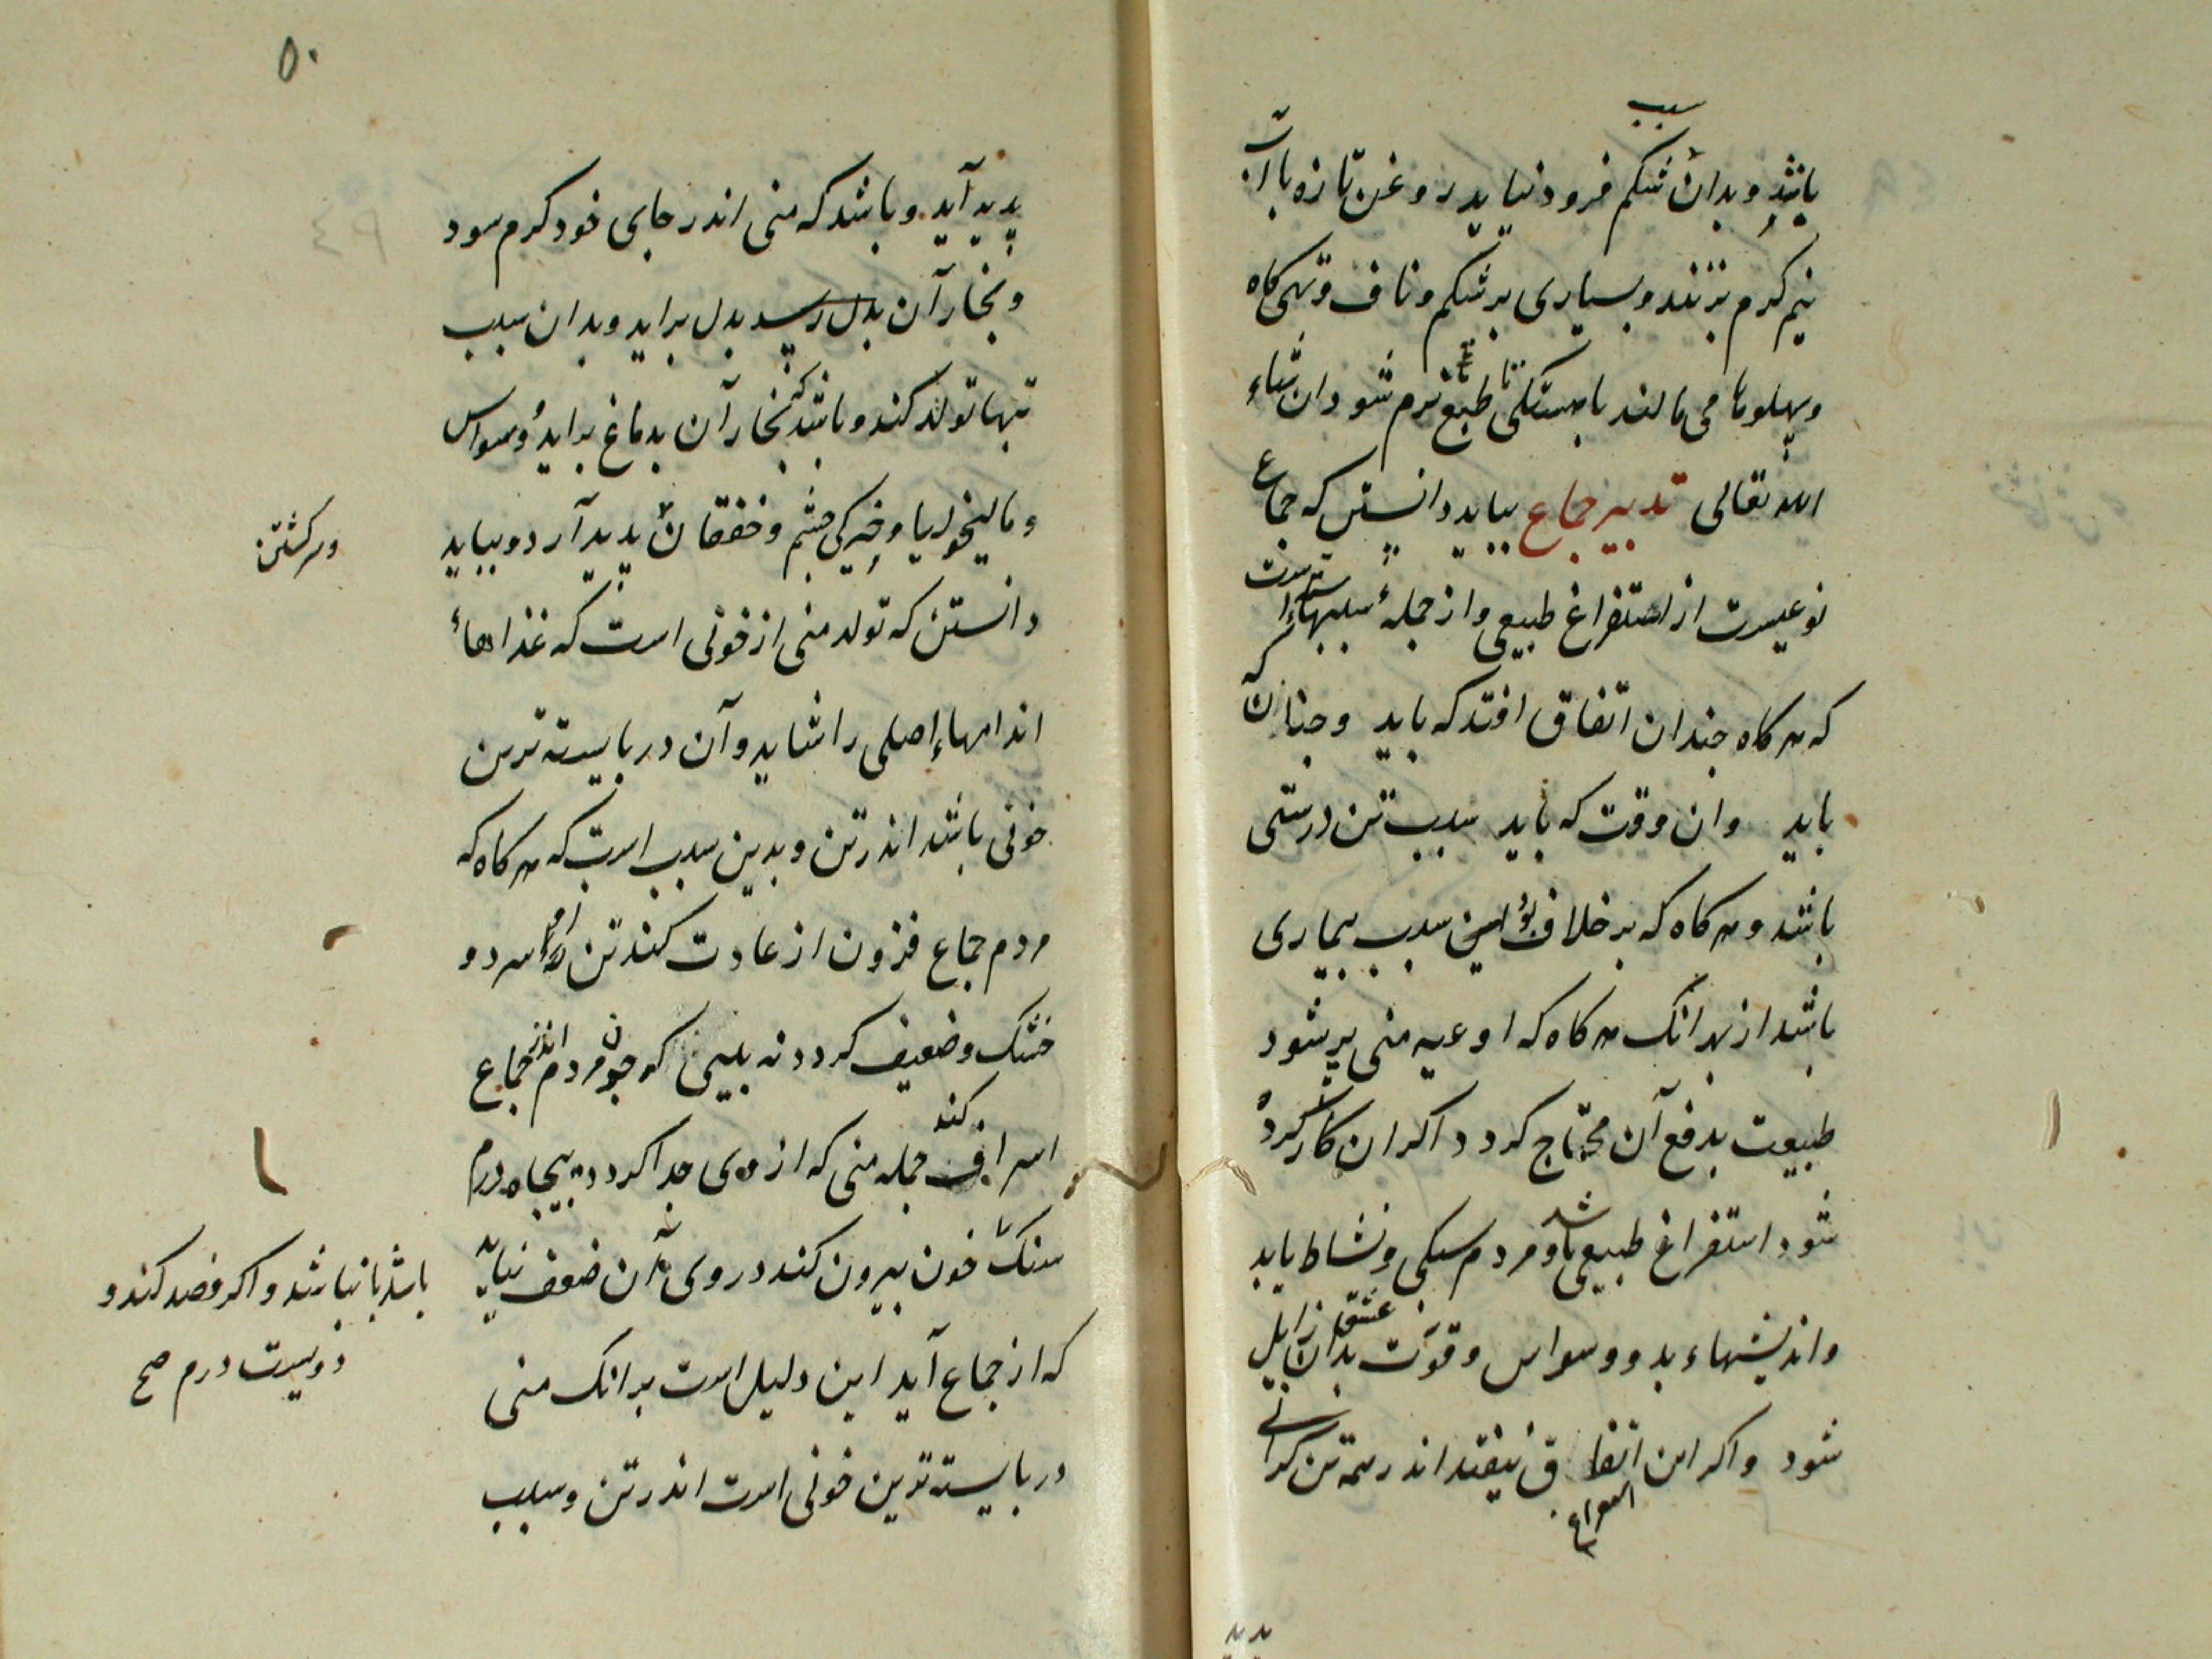 سبب
باشد و بدان شکم فرود نیاید روغن تازه با آب
نیم کرم بزنند و بسیاری بر شکم و ناف و تهی کاه
و پهلوها می مالند باهستکی تا طبع نرم شود ان شاء
الله تعالی تدبیر جماع بباید دانستن که جماع
نوعیست از استفراغ طبیعی و از جملهٔ سببهاء
که هر کاه جندان اتفاق افتد که باید و جنان که
باید وان وقت که باید سبب تن درستی
باشد و هر کاه که بر خلاف این بود سبب بیماری
باشد از بهر انک هر کاه که اوعیه منی پر شود
طبیعت بدفع آن محتاج کردد اکر ان کار کرده
شود استفراغ طبیعی باشد و مردم سبکی و نشاط یابد
واندیشهاء بد و وسواس و قوت عشق بدان زایل
شود واکر این اتفاق نیفتد اندر همه تن کرانی
استفراغ
پدید
۵۰
پدید آید و باشد که منی اندر جای خود کرم سود
و بخار آن بدل رسد بدل براید و بدان سبب
تبها تولد کند و باشد که بخار آن بدماغ براید و وسواس
و مالیخولیا و خیرکی چشم و خفقان پدید آرد و بباید
وسرکشتن
دانستن که تولد منی از خونی است که غذاهاء
اندامهاء اصلی را شاید و آن دربایسته ترین
خونی باشد اندر تن و بدین سبب است که هر کاه که
مردم جماع فزون از عادت کند تن او سرد و
خشک و ضعیف کردد نه بینی که جون مردم اندر جماع
اسراف کند جمله منی که از وی جدا کردد پنجاه درم
سنک خون بیرون کند در وی آن ضعف نیاید
باشد یا نباشد و اکر فصد کند و
دویست درم صح
که از جماع آید این دلیل است بر انک منی
دربایسته ترین خونی است اندر تن و سبب